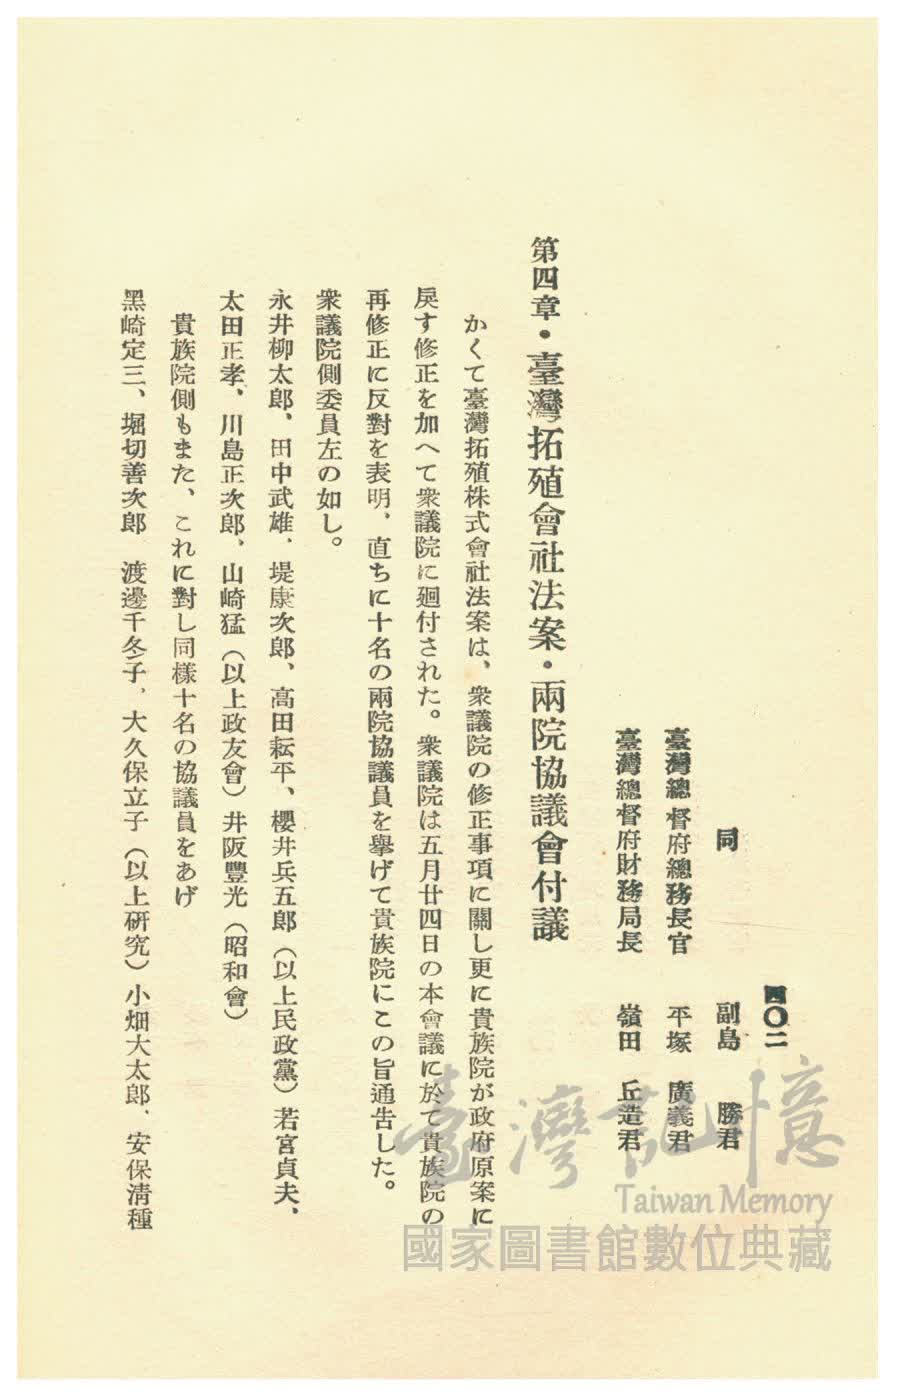 四〇二
同　副島　勝君
臺灣總督府總務長官　平塚　廣義君
臺灣總督府財務局長　嶺田　丘造君
第四章・臺灣拓殖會社法案・兩院協議會付議
かくて臺灣拓殖株式會社法案は、衆議院の修正事項に關し更に貴族院が政府原案に
戾す修正を加へて衆議院に廻付された。衆議院は五月廿四日の本會議に於て貴族院の
再修正に反對を表明、直ちに十名の兩院協議員を擧げて貴族院にこの旨通告した。
衆議院側委員左の如し。
永井柳太郎、田中武雄、堤康次郎、高田耘平、櫻井兵五郎（以上民政黨）若宮貞夫、
太田正孝、川島正次郎、山崎猛（以上政友會）井阪豐光（昭和會）
貴族院側もまた、これに對し同樣十名の協議員をあげ
黑崎定三、堀切善次郎　渡邊千冬子、大久保立子（以上研究）小畑大太郎、安保淸種
臺灣記憶
Taiwan Memory
國家圖書館數位典藏